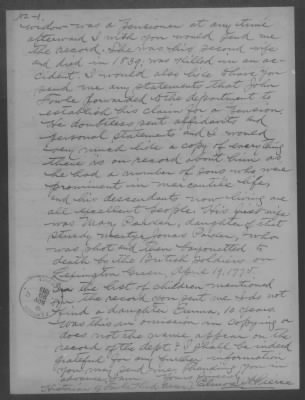 #2-1.
widow was a Pensioner at any time
afterward I wish you would send me
the record. She was his second wife
and died in 1839, was killed in an ac-
cident. I would also like to have you
send me any statements that John
Fowle furnished to the department to
establish his claim for a Pension.
He doubtless sent affidavits and
personal statements and I would
very much like a copy of everything
there is on record about him as
he had a number of sons who were
prominent in mercantile life,
and his descendants now living are
all excellent people. His first wife
was Mary Parker, daughter of that
sturdy martyr Jonas Parker, who
was shot and then bayonetted to
death by the British Soldiers on
Lexington Green, April 19, 1775.
In the list of children mentioned
in the record you sent me I do not
find a daughter Emma, 10 years.
Was this an omission in copying or
does not the name appear on the
record of the dept.? I shall be indeed
grateful for any further information
you may send me, thanking you in
advance I am Yours